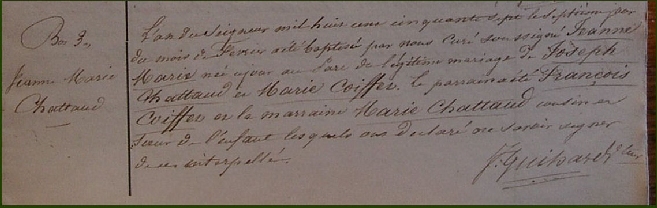 Bme 3e
Jeanne Marie
Chattaud
L'an du Seigneur mil huit cent cinquante sept le septième jour
du mois de Février a été baptisé par nous curé soussigné Jeanne
Marie née ce jour au de légitime mariage de Joseph
Chattaud et Marie Coiffer. Le parrain a été François
Coiffer et la marraine Marie Chattaud cousin et
sœur de l'enfant lesquels ont déclaré ne savoir signer
de ce interpellé.
J. Guihard